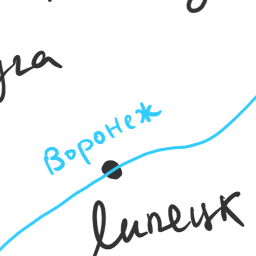 Воронеж
Липецк